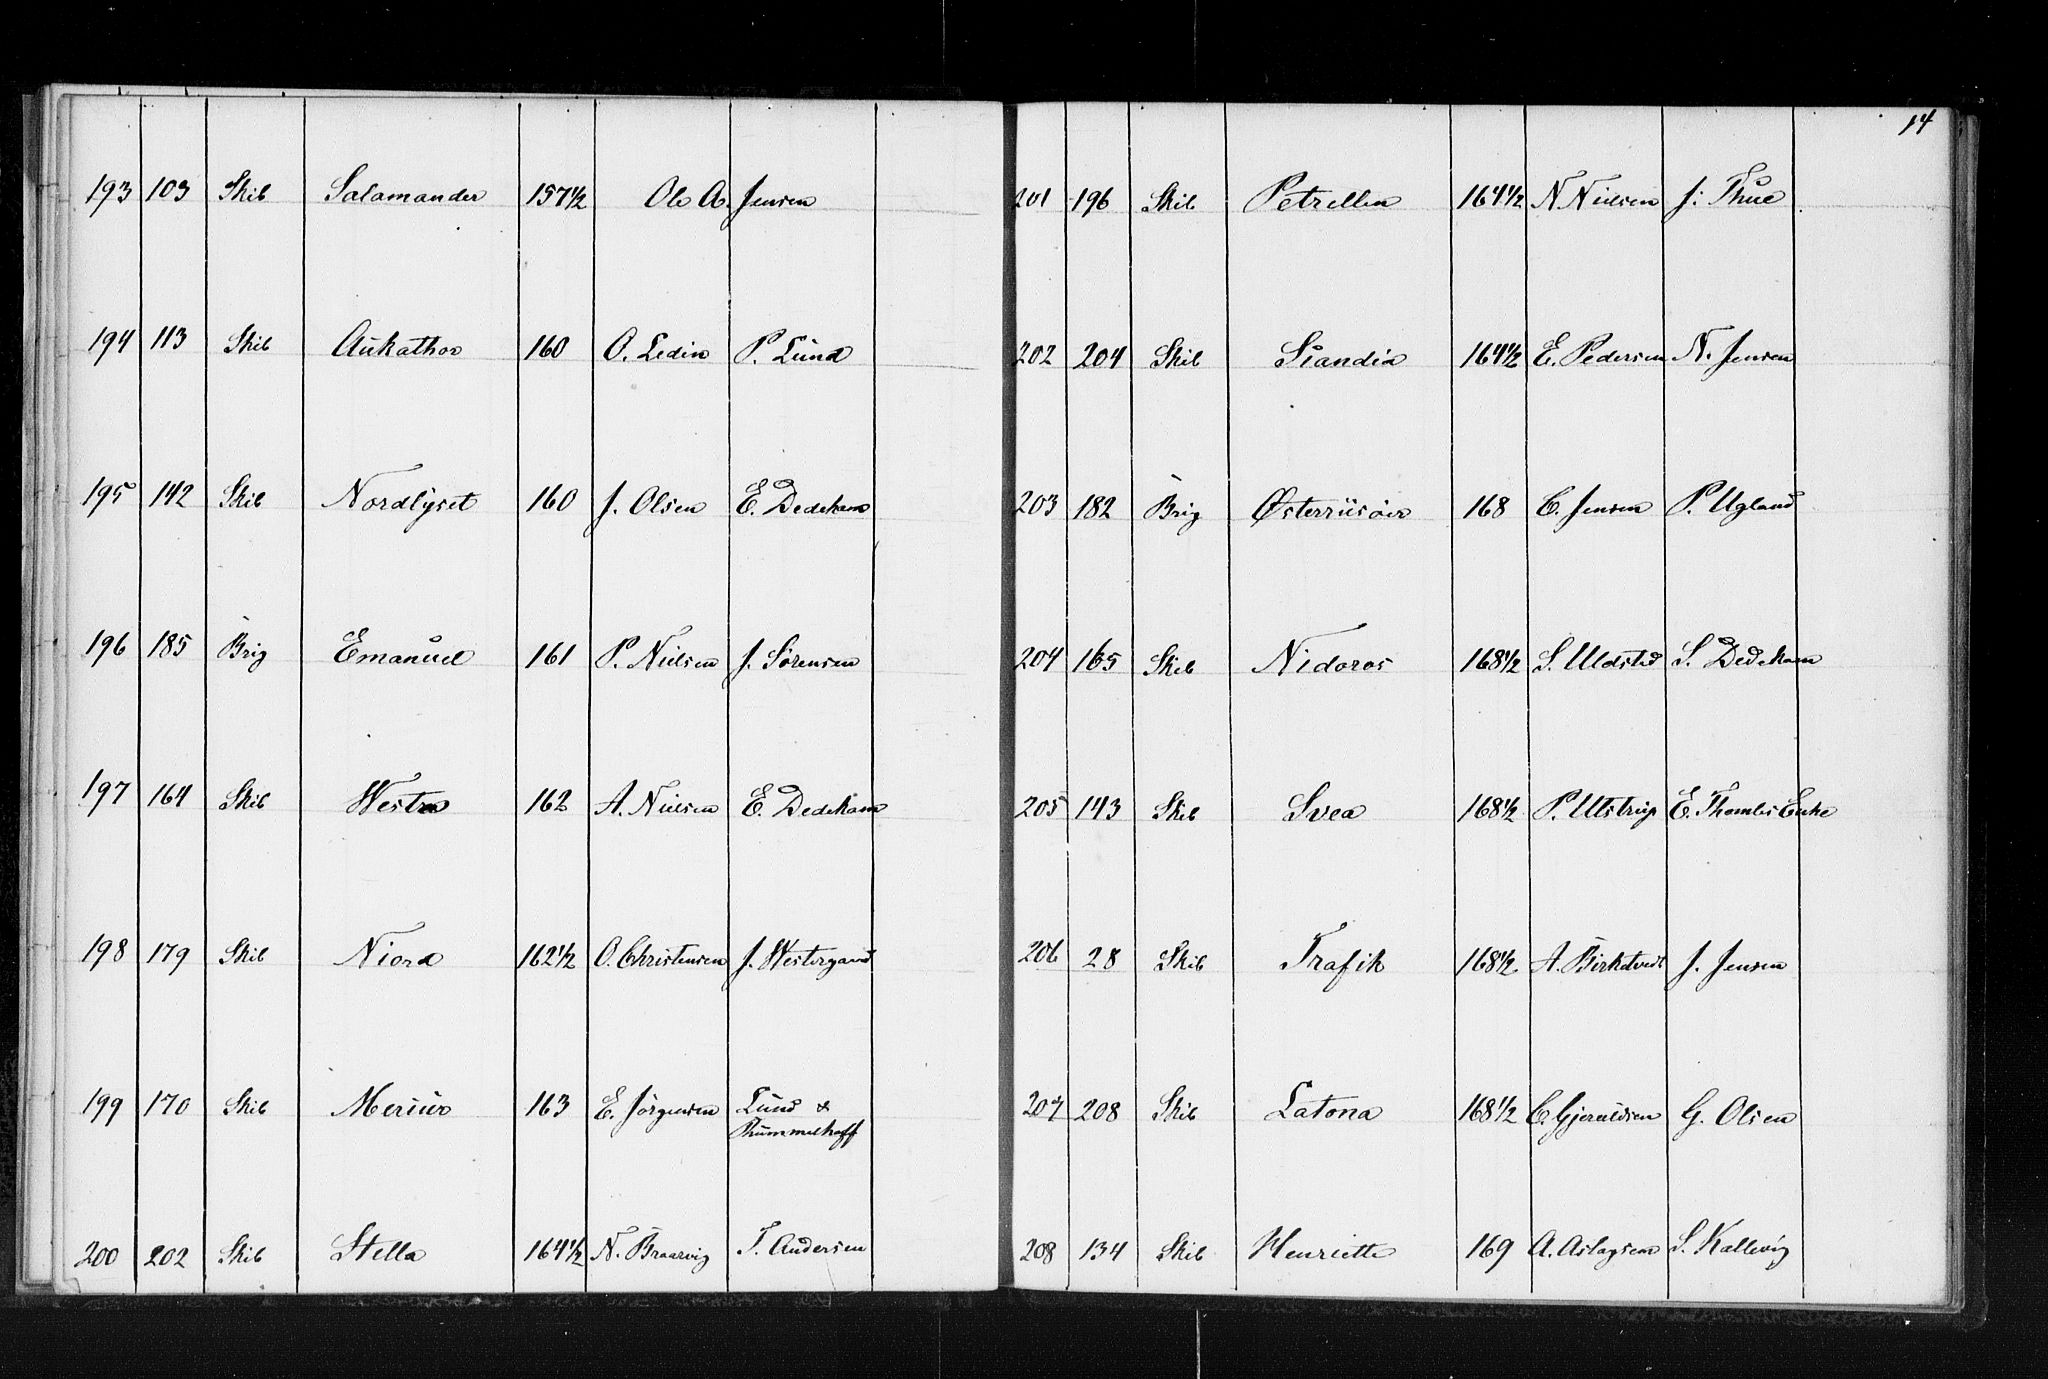 193 103 Skib Salamander 157 1/2 Ole A. Jensen
194 113 Skib Aukathor 160 O. Ledin P. Lund
195 142 Skib Nordlyset 160 J. Olsen E. Dedekam
196 185 Brig Emanuel 161 P. Nielsen J. Sørensen
197 164 Skib Westa 162 A. Nielsen E. Dedekam
198 179 Skib Niord 162 1/2 O. Christensen J. Westergaard
199 170 Skib Mercur 163 E. Jörgensen Lund &
Rummelhoff
200 202 Skib Stella 164 1/2 N. Braarvig T. Andersen
14
201 196 Skib Petrellen 164 1/2 N Nielsen J. Thue
202 204 Skib Scandia 164 1/2 E. Pedersen N. Jensen
203 182 Brig Østerriisöer 168 C. Jensen P. Ugland
204 165 Skib Nidaros 168 1/2 S. Uldsted S. Dedekam
205 143 Skib Svea 168 1/2 P. Ulstrup E. Thombs Enke
206 28 Skib Trafik 168 1/2 A. Birketvedt J. Jensen
207 208 Skib Latona 168 1/2 C. Gjeruldsen G. Olsen
208 134 Skib Henriette 169 A. Aslagsen S. Kallevig